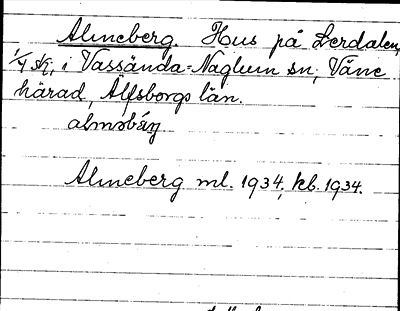 Almeberg. Hus på Lerdalen,
1/4 sk, i Vassända-Naglum sn, Väne
härad, Älfsborgs län.
alməbárj
Almeberg ml. 1934, kb. 1934.